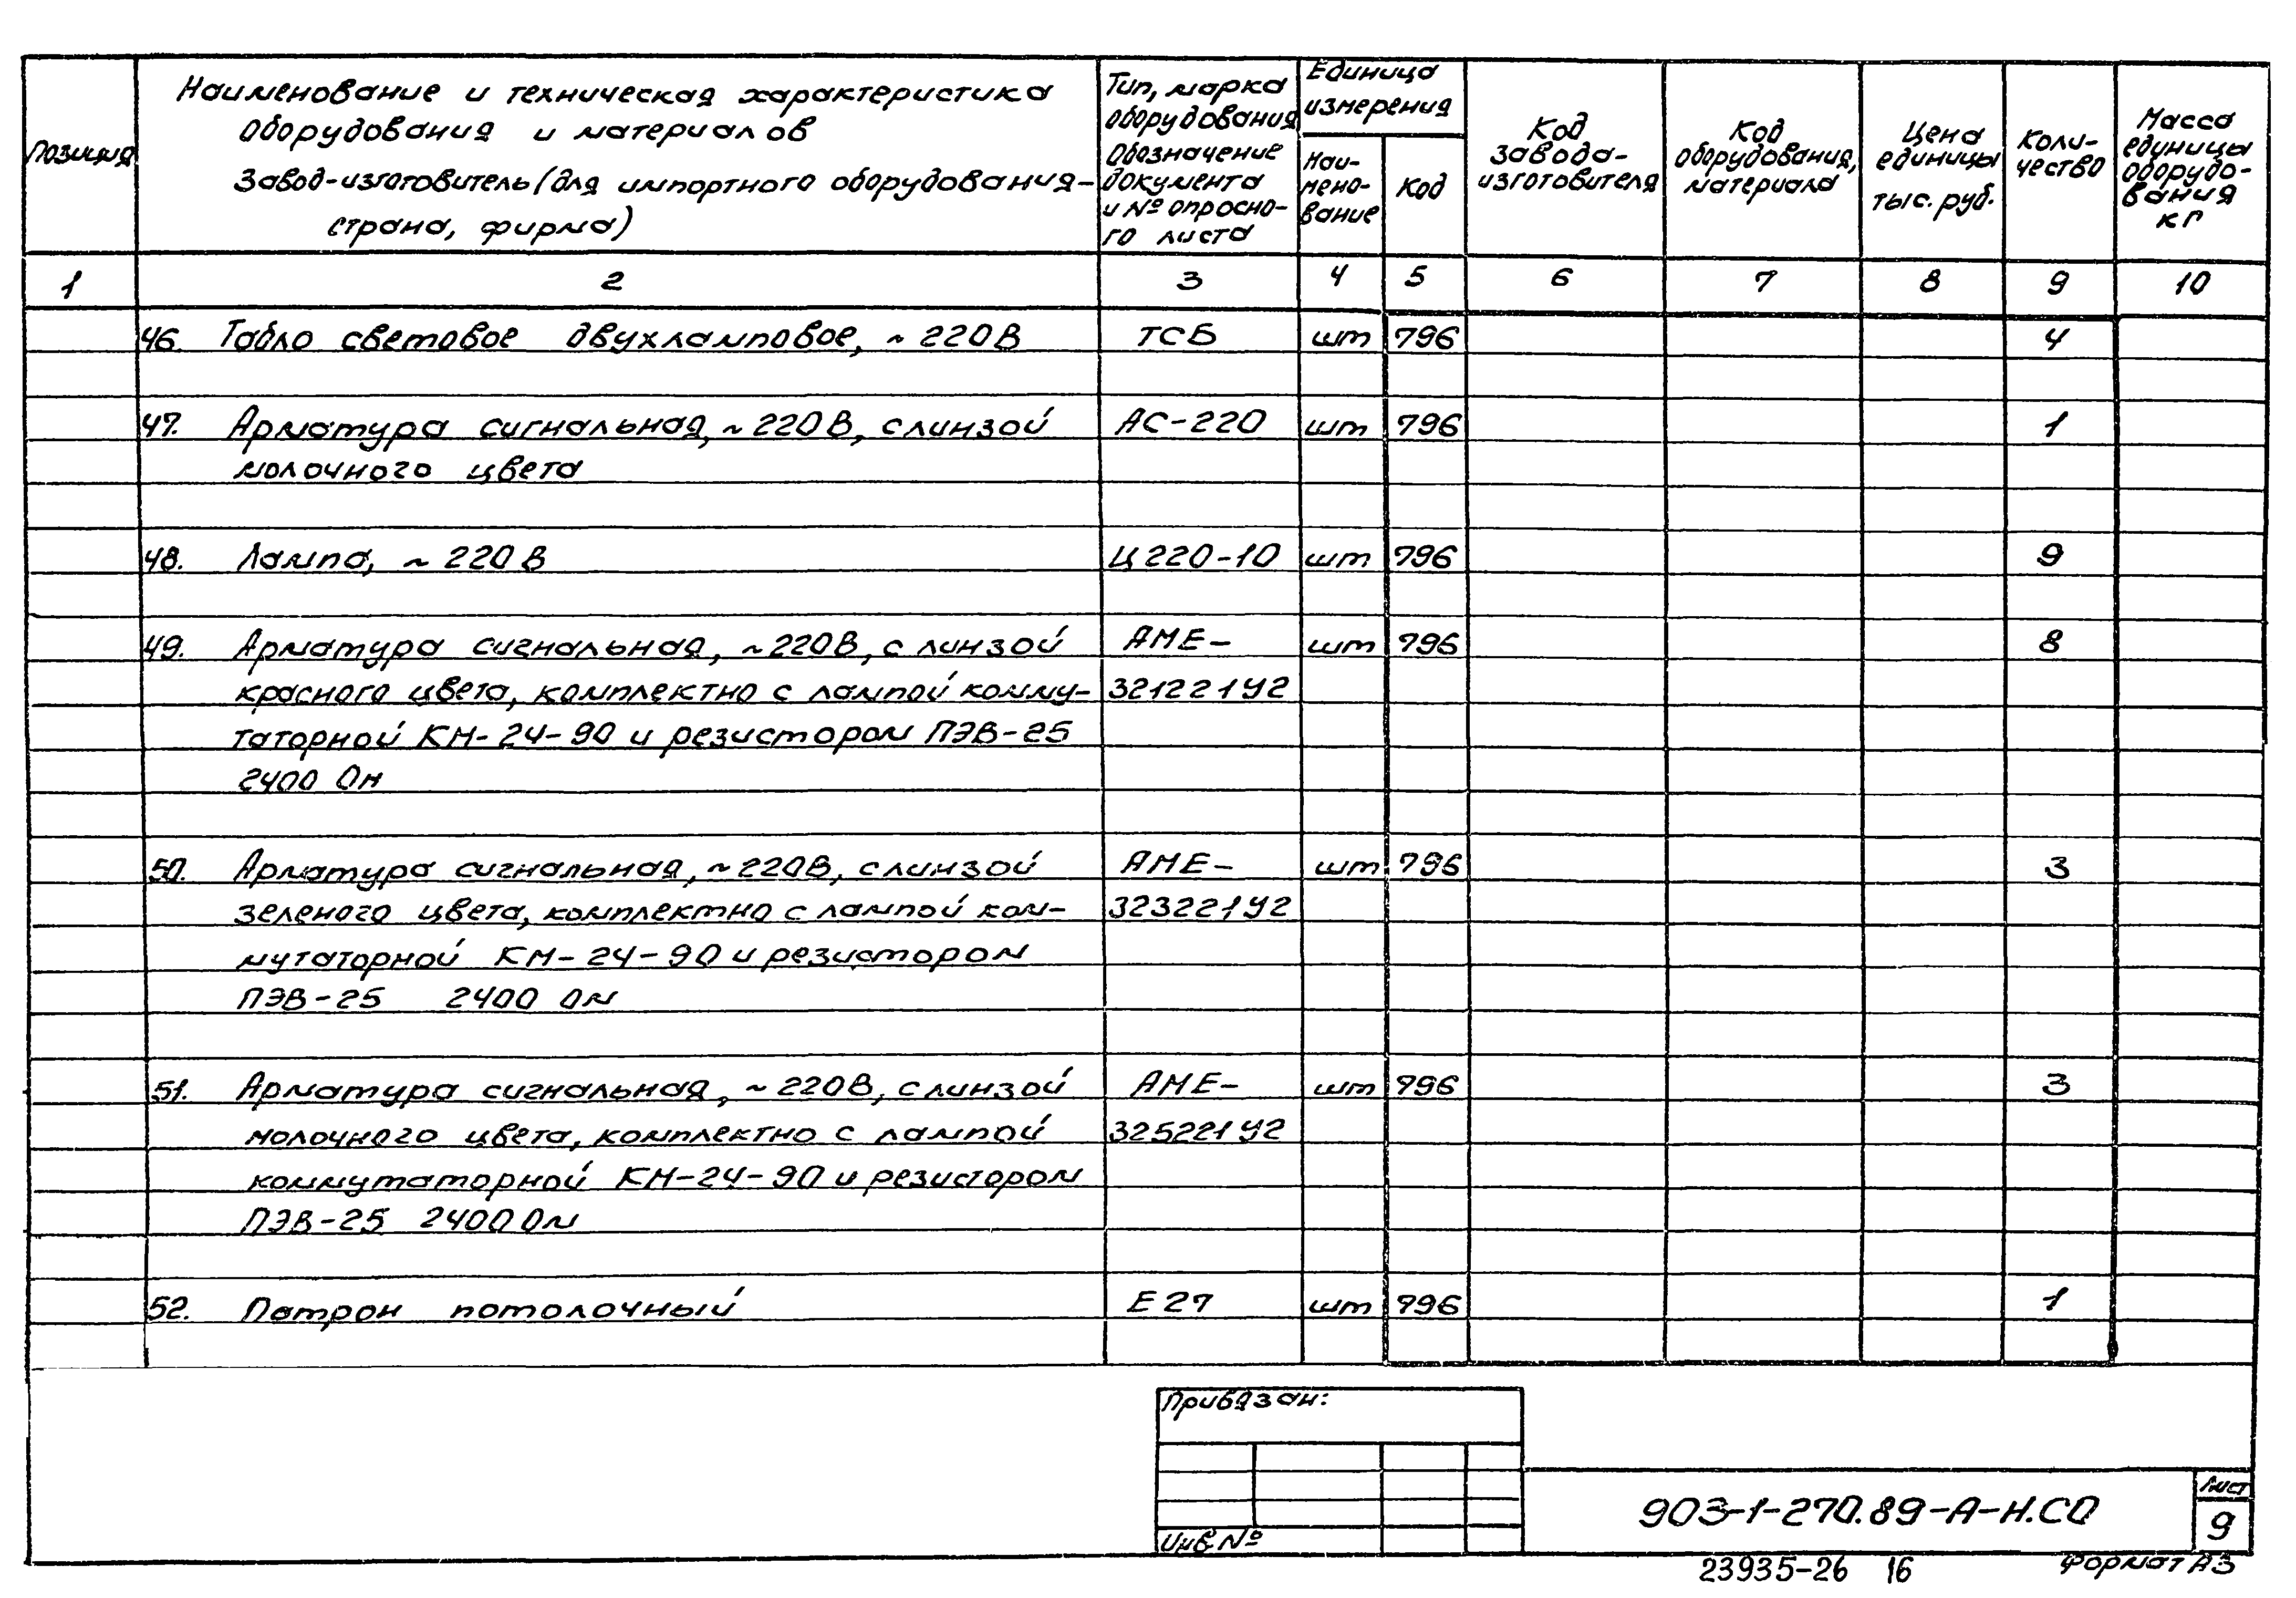 Позиция
Наименование и техническая характеристика
оборудования и материалов
Завод-изготовитель (для импортного оборудования-
страна, фирма)
Тип, марка
оборудования
Обозначение
документа
и № опросно-
го листа
Единица
измерения
Наи-
мено-
вание
Код
Код
завода-
изготовителя
Код
оборудования,
материала
Цена
единицы
тыс. руб.
Коли-
чество
Масса
единицы
оборудо-
вания
кг
1 2 3 4 5 6 7 8 9 10
46. Табло световое двухламповое, ~ 220 В ТСБ шт 796 4
47. Арматура сигнальная, ~ 220 В, с линзой АС-220 шт 796 1
молочного цвета
48. Лампа, ~ 220 В Ц 220-10 шт 796 9
49. Арматура сигнальная, ~ 220 В, с линзой АМЕ- шт 796 8
красного цвета, комплектно с лампой комму- 321221У2
таторной КМ-24-90 и резистором ПЭВ-25
2400 Ом
50. Арматура сигнальная, ~ 220 В, с линзой АМЕ- шт 796 3
зеленого цвета, комплектно с лампой ком- 323221У2
мутаторной КМ-24-90 и резистором
ПЭВ-25 2400 Ом
51. Арматура сигнальная, ~ 220 В, с линзой АМЕ- шт 796 3
молочного цвета, комплектно с лампой 325221У2
коммутаторной КМ-24-90 и резистором
ПЭВ-25 2400 Ом
52. Патрон потолочный Е 27 шт 796 1
Привязан:
Инв. №
903-1-270.89-А-Н.СО
Лист
9
23935-26 16 Формат А3